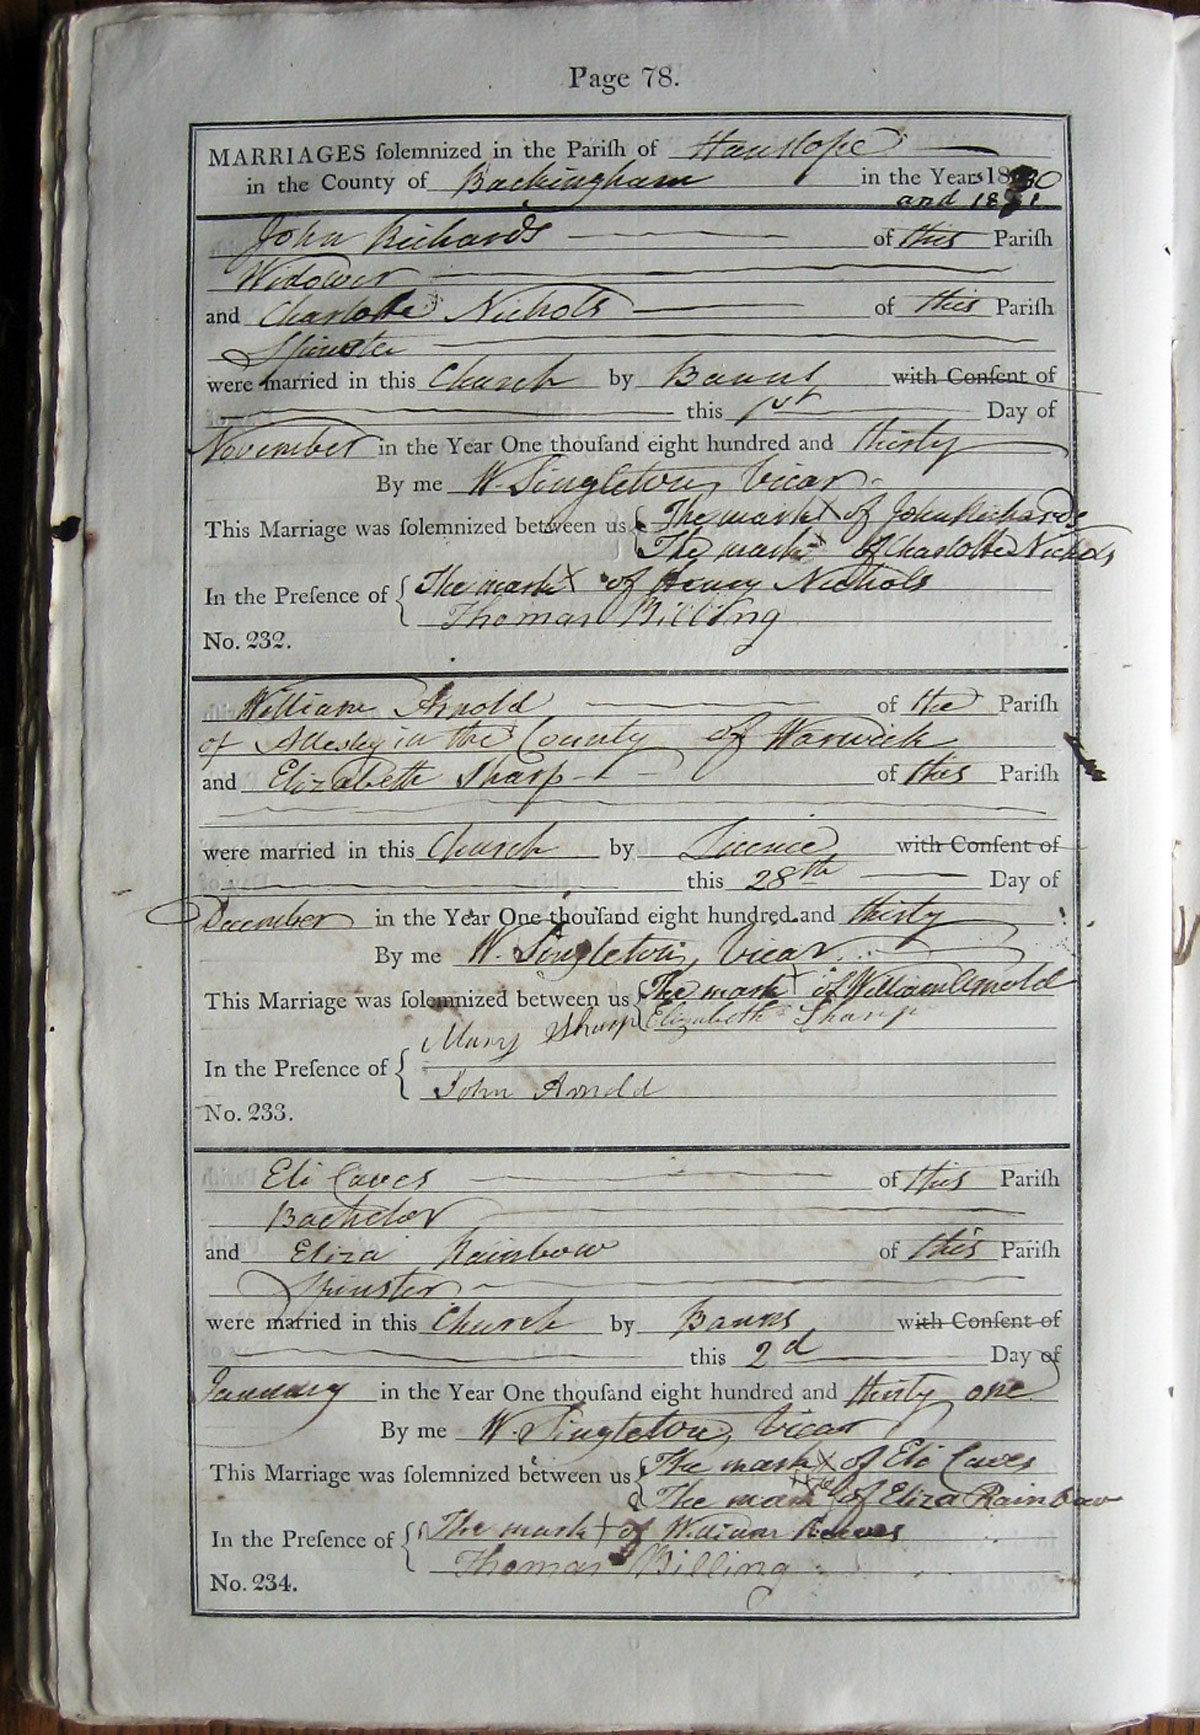 Page 78.
MARRIAGES ſolemnized in the Pariſh of Hanslope
in the County of Buckingham in the Years 1830
and 1831
John Richards of this Pariſh
Widower
and Charlotte Nichols of this Pariſh
Spinster
were married in this Church by Banns with Conſent of
this 1st Day of
November in the Year One thouſand eight hundred and thirty
By me W. Singleton, Vicar
This Marriage was ſolemnized between us The mark X of John Richards
The mark X of Charlotte Nichols
In the Preſence of The mark X of Henry Nichols
Thomas Billing
No. 232.
William Arnold of the Pariſh
of Allesley in the County of Warwick
and Elizabeth Sharp of this Pariſh
were married in this Church by Licence with Conſent of
this 28th Day of
December in the Year One thouſand eight hundred and thirty
By me W. Singleton, Vicar
This Marriage was ſolemnized between us The mark X of William Arnold
Elizabeth Sharp
Mary Sharp
In the Preſence of
John Arnold
No. 233.
Eli Caves of this Pariſh
Bachelor
and Eliza Rainbow of this Pariſh
Spinster
were married in this Church by Banns with Conſent of
this 2d Day of
January in the Year One thouſand eight hundred and thirty one
By me W. Singleton, Vicar
This Marriage was ſolemnized between us The mark X of Eli Caves
The mark X of Eliza Rainbow
In the Preſence of The mark X of William Reeves
Thomas Billing
No. 234.